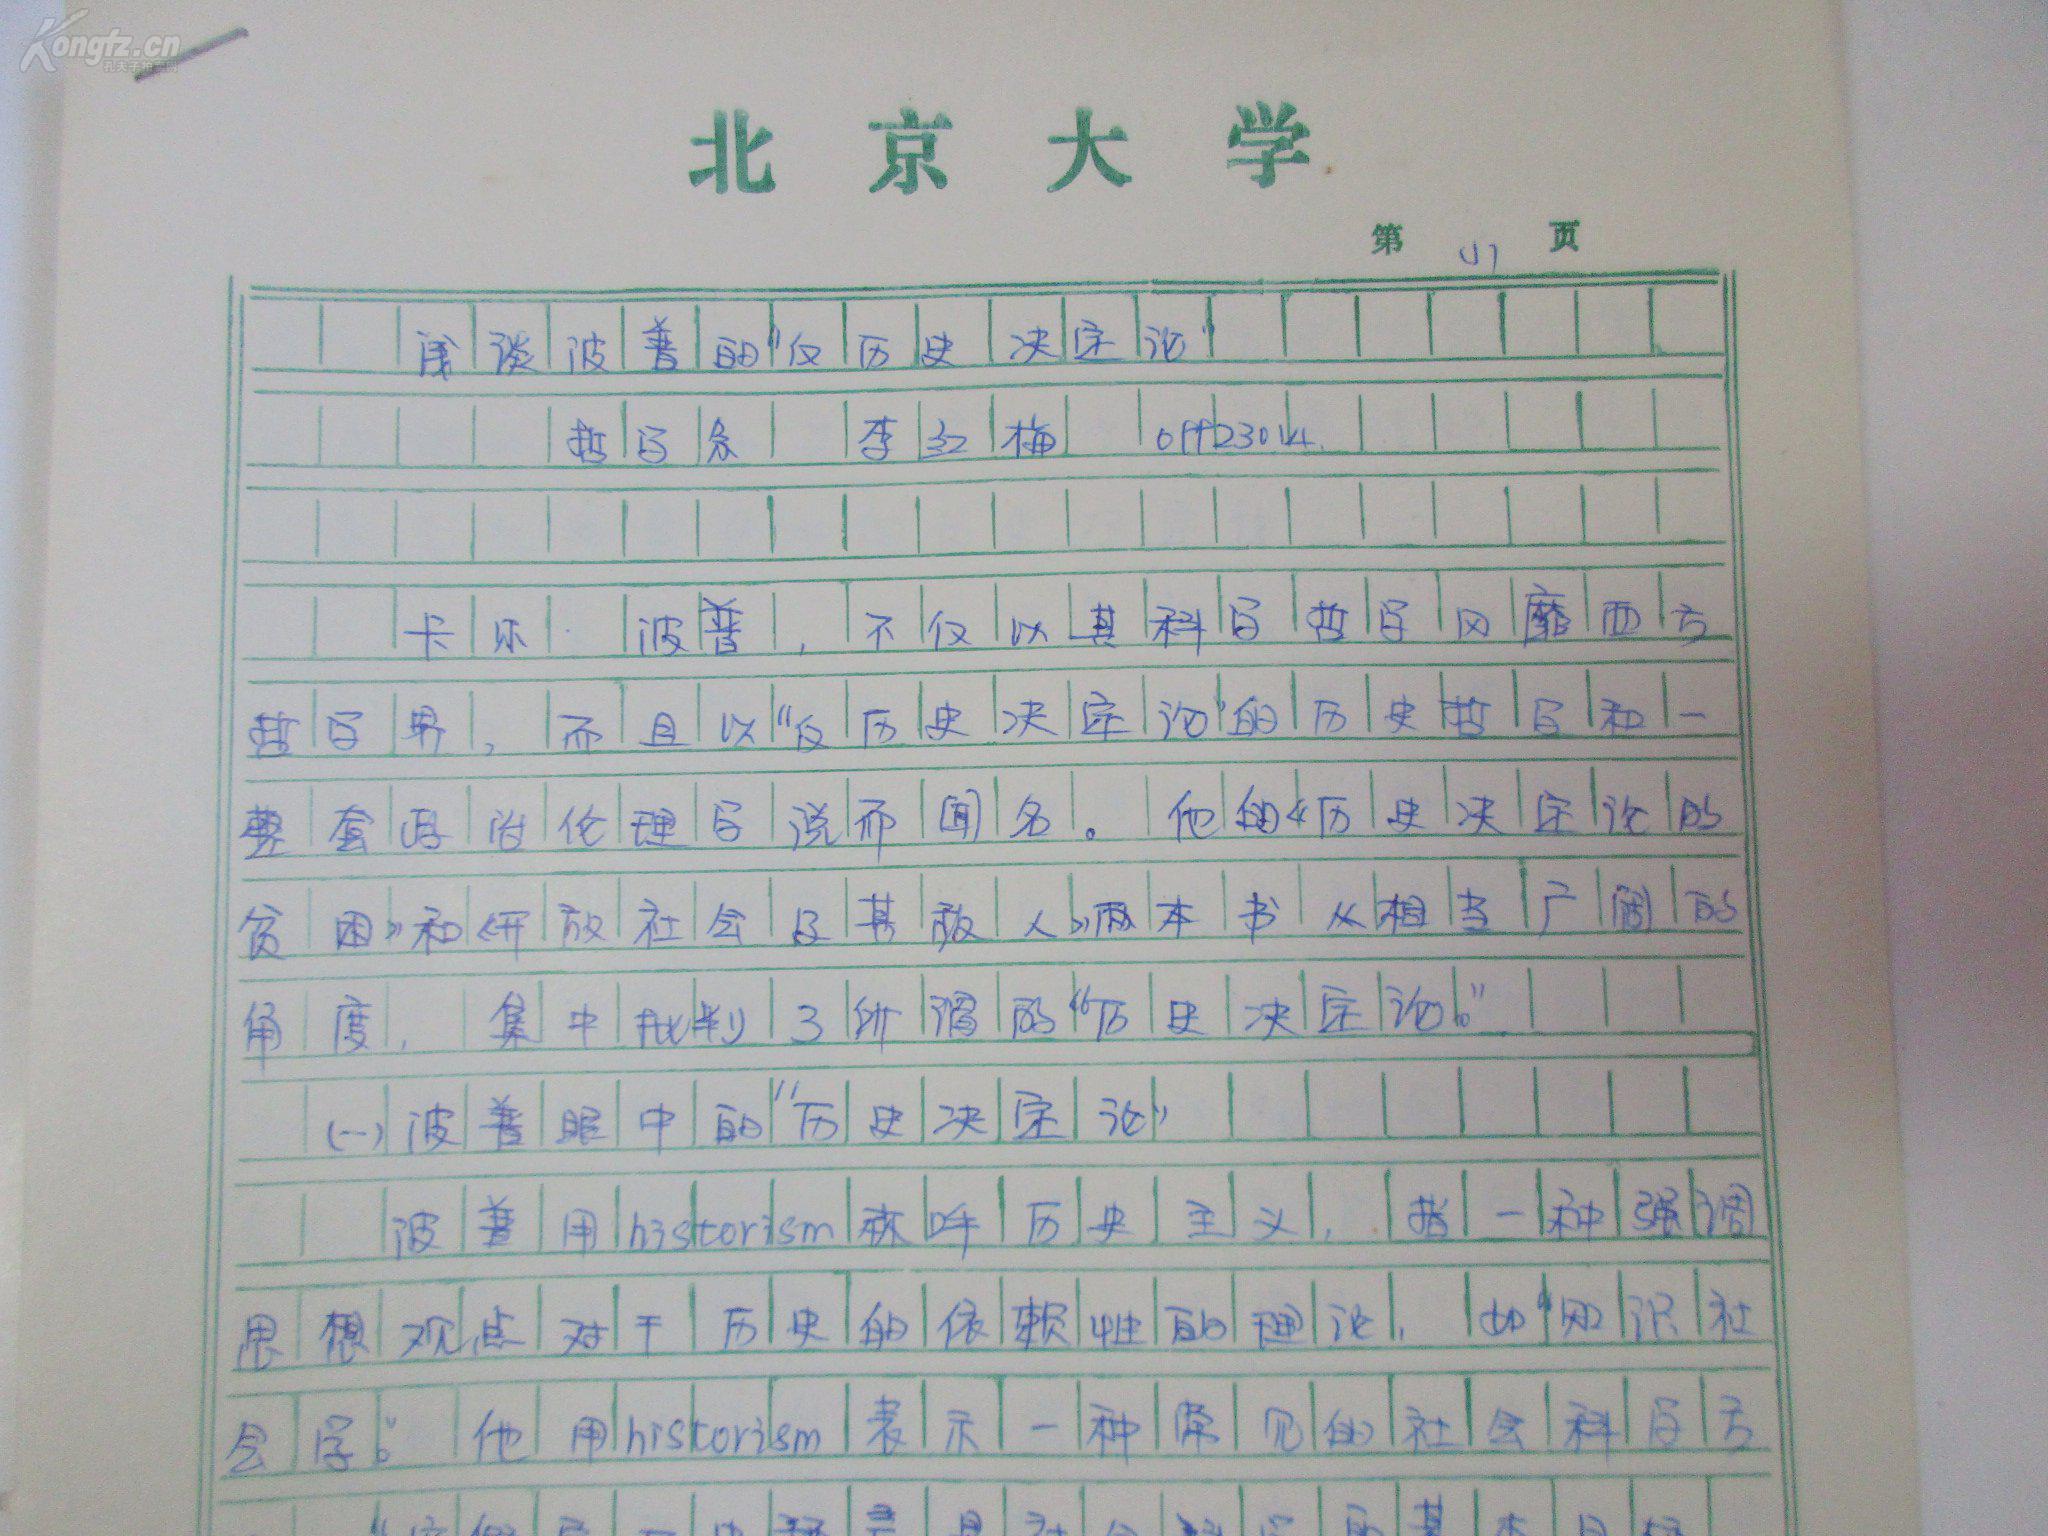 Kongfz.cn
北京大学
第 页
浅谈波普的“反历史决定论”
哲学系 李红梅
卡尔·波普，不仅以其科学哲学风靡西方
哲学界，而且以“反历史决定论”的历史哲学和一
整套政治伦理学说而闻名。他的《历史决定论的
贫困》和《开放社会及其敌人》两本书从相当广阔的
角度，集中批判了所谓的“历史决定论。”
(一)波普眼中的“历史决定论”
波普用historism称呼历史主义，指一种强调
思想观点对于历史的依赖性的理论，如“知识社
会学。”他用historism表示一种常见的社会科学方